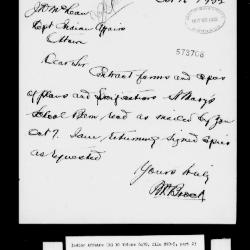 Oct 12 1902
J D McLean
Dept Indian Affairs
Ottawa
573708
Dear Sir
Contract forms and copies
of plans and specifications St Mary's
School Blood, recd as mailed by you
Oct 7. I am returning signed copies
as requested
Yours truly
Indian Affairs (RG 10 Volume